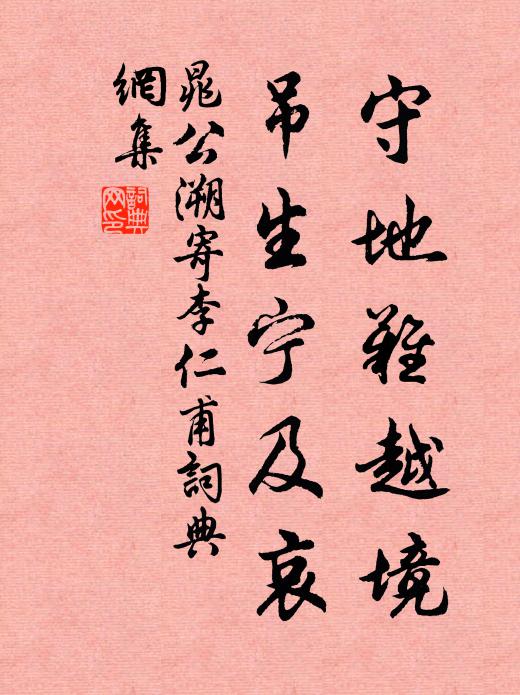 守地難越境
吊生宁及哀
晁公溯寄李仁甫詞典
網集
詞典
網印